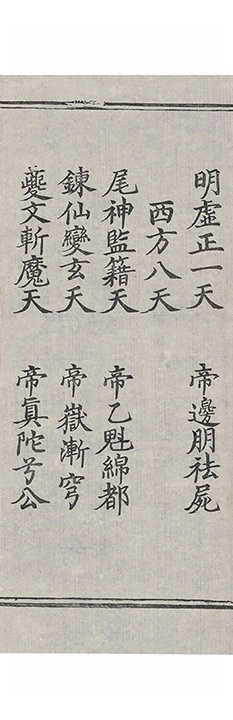 明虛正一天　帝邊朋祛屍
西方八天
尾神監籍天　帝乙魁綿都
鍊仙變玄天　帝嶽漸穹
夔文斬魔天　帝眞陀兮公